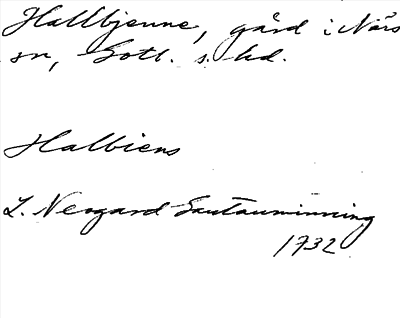 Hallbjenne, gård i Närs
sn, Gotl. s. hd.
Halbiens
L. Nergard Gautauminning
1732